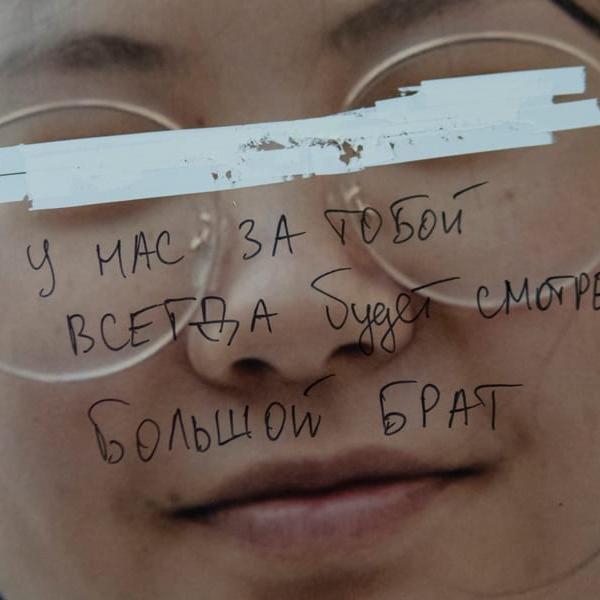 У НАС ЗА ТОБОЙ
ВСЕГДА будет СМОТРЕ
БОЛЬШОЙ БРАТ